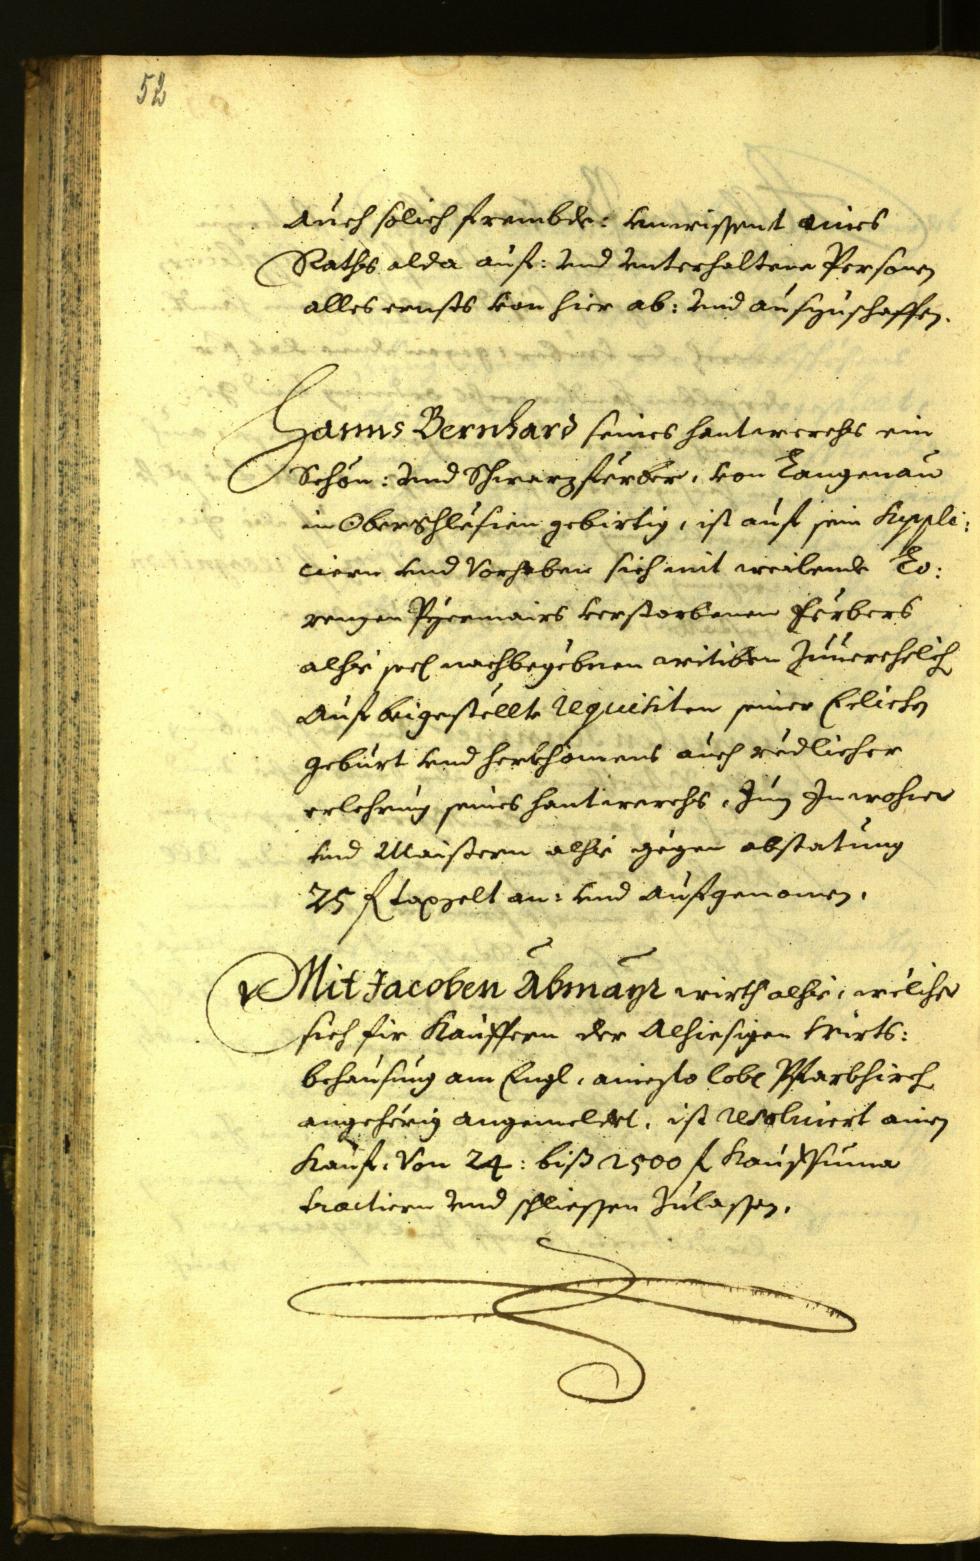 52
auch solich frembde: unwissent aines
Raths alda auf: und unterhaltene Personen
alles ernsts von hier ab: und auszuschaffen.
Hanns Bernhard seines hantwerchs ein
Schön: und Schwarzferber, von Langenau
in Oberschlesien gebirtig, ist auf sein Suppli:
ciern und Vorhaben sich mit weilende Lo:
renzen Pyrmairs verstorbenen Ferbers
alhie seel nachbegebnen witiben Zuuerehelich
Auf beigestellte Requisiten seiner Eelichn
geburt und herkhomens auch redlicher
erlehrnung seines hantwerchs, Zum Inwohner
und Maistern alhie gegen abstatung
25 f taxgelt an: und aufgenomen.
Mit Jacoben Abmayr wirth alhie, welicher
sich fir Kauffern der Alhiesigen Wirts:
behausung am Engl, ainesto lobl Pfarkhirch
angehörig angemeldet, ist resoluiert ainen
Kauf, Von 24: biß 2500 f Kaufsuma
tractiern und schliessen Zulassen.